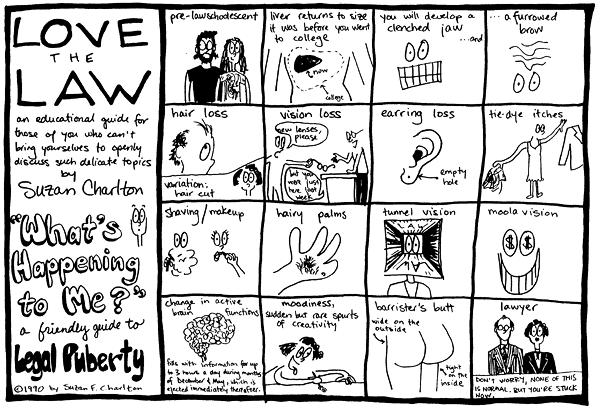 LOVE
THE
LAW
an educational guide for
those of you who can't
bring yourselves to openly
discuss such delicate topics
by
Suzan Charlton
"What's
Happening
to Me?"
a friendly guide to
Legal Puberty
©1990 by Suzan F. Charlton
pre-lawschodescent
liver returns to size
it was before you went
to college
now
college
you will develop a
clenched jaw
...and
...a furrowed
brow
hair loss
variation:
hair cut
vision loss
new lenses,
please
but you
were just
here last
week
earring loss
empty
hole
tie-dye itches
shaving/makeup
hairy palms
tunnel vision
moola vision
$ $
change in active
brain functions
fills with information for up
to 3 hours a day during months
of December & May, which is
ejected immediately thereafter.
moodiness,
sudden but rare spurts
of creativity
barrister's butt
wide on the
outside
tight on
the inside
lawyer
DON'T WORRY, NONE OF THIS
IS NORMAL. BUT YOU'RE STUCK
NOW.